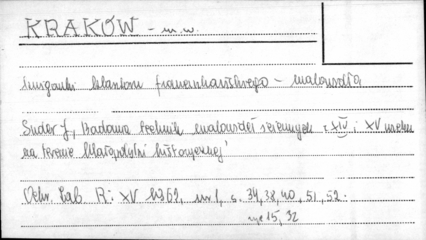 KRAKÓW - m.w.
krużganki klasztoru franciszkańskiego - malowidła
Suder J, Badania techniki malowideł ściennych z XIV i XV wieku
na terenie Małopolski historycznej
Ochr. Zab. R: XV 1962, nr 1, s. 34, 38, 40, 51, 52.
ryc 15, 32